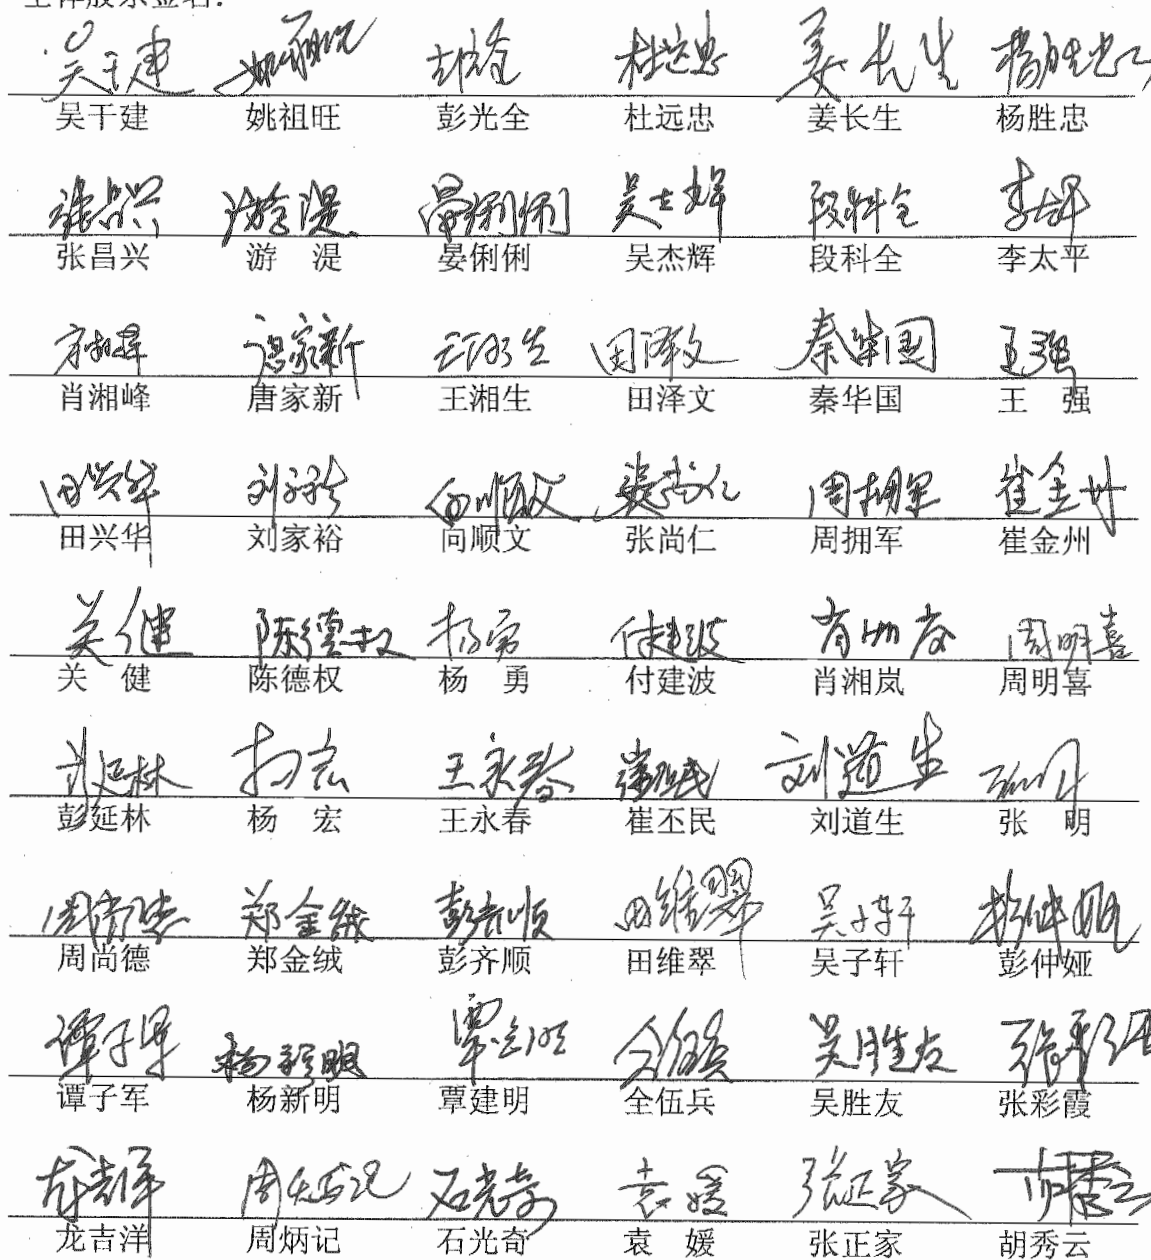 全体股东签名：
吴干建 姚祖旺 彭光全 杜远忠 姜长生 杨胜忠
吴干建 姚祖旺 彭光全 杜远忠 姜长生 杨胜忠
张昌兴 游湜 晏俐俐 吴杰辉 段科全 李太平
张昌兴 游 湜 晏俐俐 吴杰辉 段科全 李太平
肖湘峰 唐家新 王湘生 田泽文 秦华国 王强
肖湘峰 唐家新 王湘生 田泽文 秦华国 王 强
田兴华 刘家裕 向顺文 张尚仁 周拥军 崔金州
田兴华 刘家裕 向顺文 张尚仁 周拥军 崔金州
关健 陈德权 杨勇 付建波 肖湘岚 周明喜
关 健 陈德权 杨 勇 付建波 肖湘岚 周明喜
彭延林 杨宏 王永春 崔丕民 刘道生 张明
彭延林 杨 宏 王永春 崔丕民 刘道生 张 明
周尚德 郑金绒 彭齐顺 田维翠 吴子轩 彭仲娅
周尚德 郑金绒 彭齐顺 田维翠 吴子轩 彭仲娅
谭子军 杨新明 覃建明 全伍兵 吴胜友 张彩霞
谭子军 杨新明 覃建明 全伍兵 吴胜友 张彩霞
龙吉洋 周炳记 石光奇 袁媛 张正家 胡秀云
龙吉洋 周炳记 石光奇 袁 媛 张正家 胡秀云